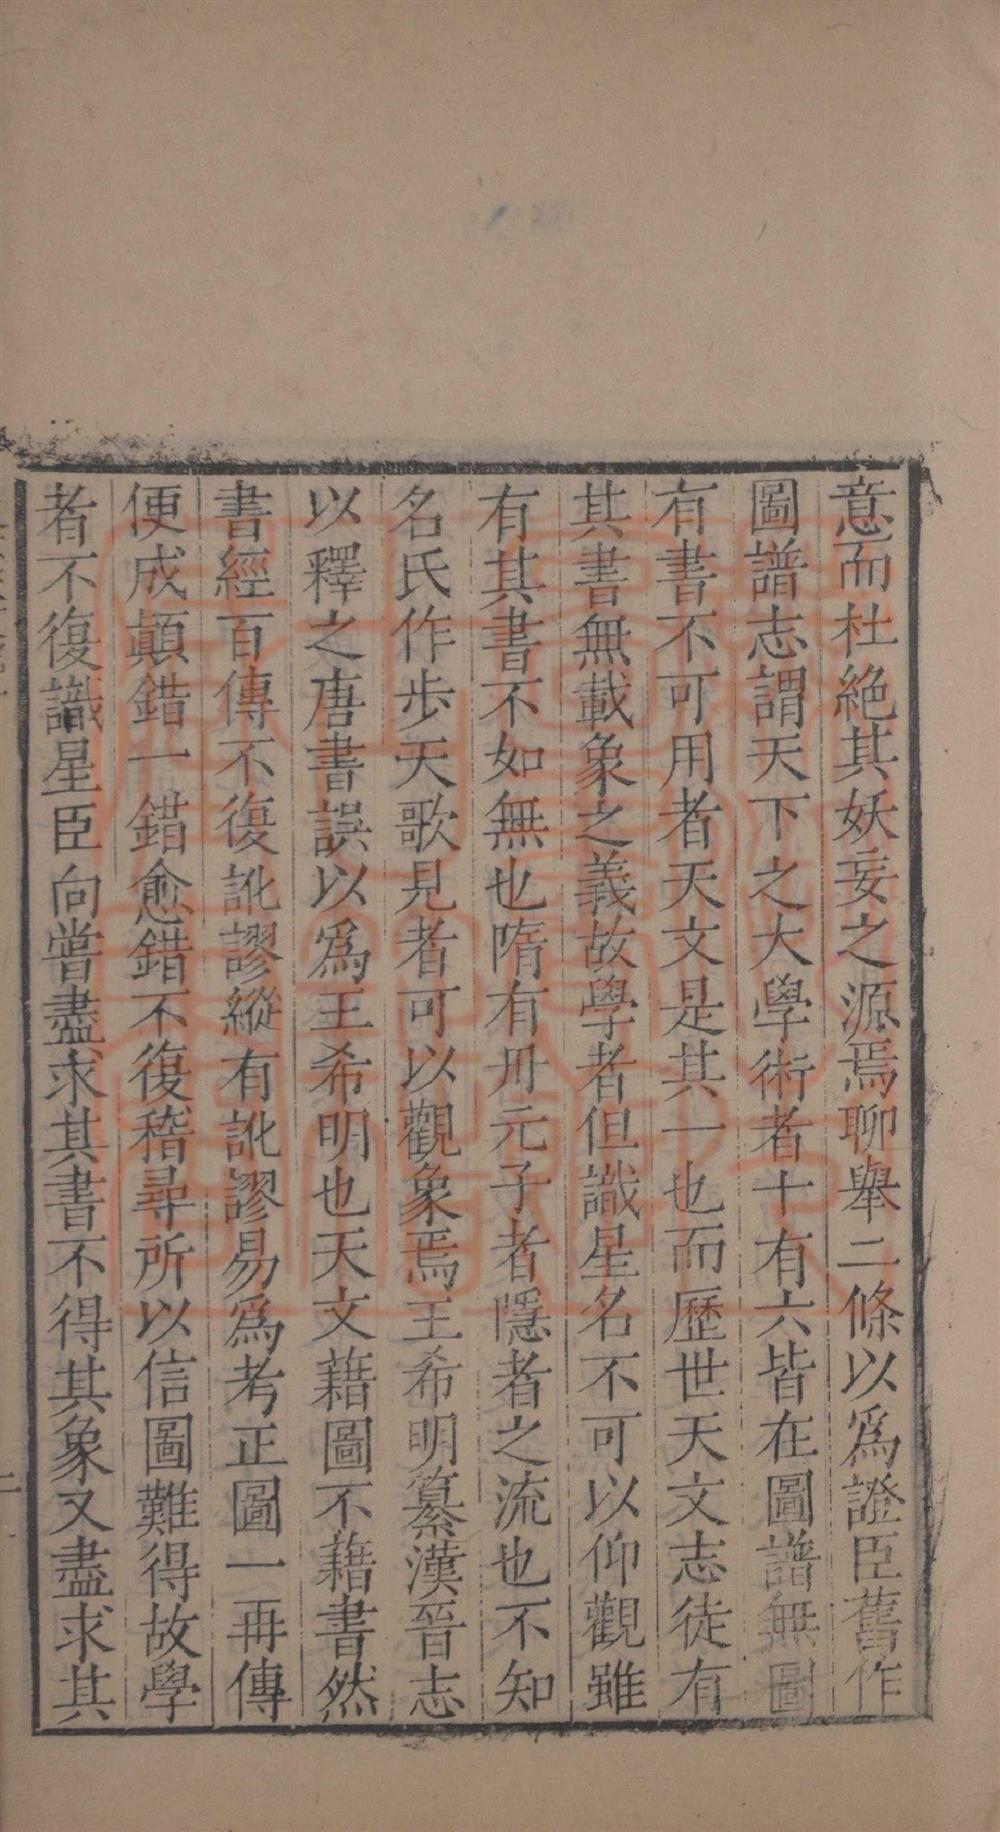 意而杜絶其妖妄之源焉聊舉二條以爲證臣舊作
圖譜志謂天下之大學術者十有六皆在圖譜無圖
有書不可用者天文是其一也而歷世天文志徒有
其書無載象之義故學者但識星名不可以仰觀雖
有其書不如無也隋有丹元子者隱者之流也不知
名氏作步天歌見者可以觀象焉王希明纂漢晉志
以釋之唐書誤以爲王希明也天文藉圖不藉書然
書經百傳不復訛謬縱有訛謬易爲考正圖一再傳
便成顛錯一錯愈錯不復稽尋所以信圖難得故學
者不復識星臣向嘗盡求其書不得其象又盡求其